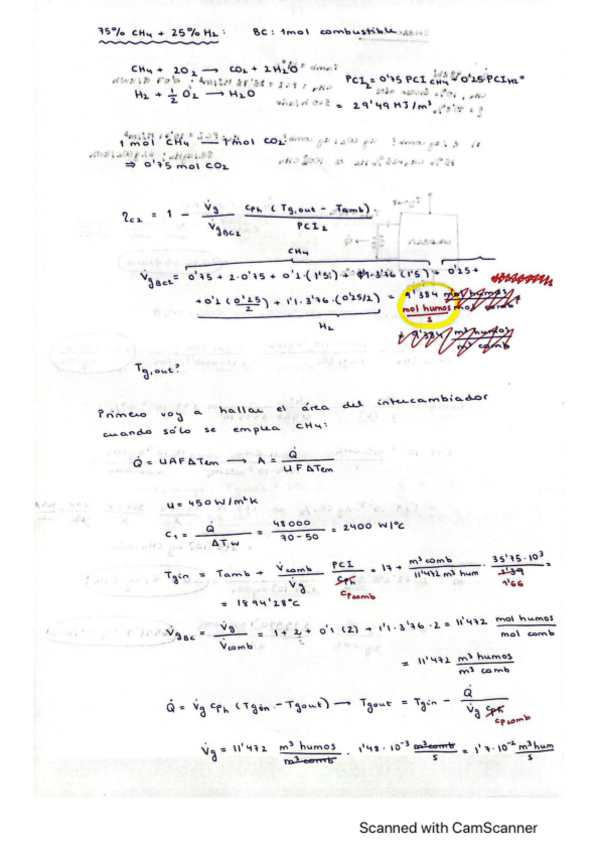 75% CH4 + 25% H2: BC: 1mol combustible
CH4 + 2O2 → CO2 + 2H2O
H2 + 1/2 O2 → H2O
PCI2 = 0'75 PCI CH4 + 0'25·PCI H2 =
= 29'49 MJ/m³
1 mol CH4 — 1 mol CO2
⇒ 0'75 mol CO2
ηc2 = 1 - V̇g/V̇gBC2 · cph (Tg,out - Tamb)/PCI2
CH4
V̇gBC2 = 0'75 + 2·0'75 + 0'1·(1'5) + 1'1·3'76·(1'5) + 0'25 +
+ 0'1 (0'25/2) + 1'1·3'76·(0'25/2) = 9'384 mol humos/s
H2
Tg,out?
Primero voy a hallar el área del intercambiador
cuando sólo se emplea CH4:
Q̇ = UAFΔTem → A = Q̇/UFΔTem
U = 450 W/m²K
C1 = Q̇/ΔT,w = 48000/70-50 = 2400 W/°C
Tgin = Tamb + V̇comb/V̇g · PCI/cpcomb = 17 + m³comb/11'472 m³hum · 35'75·10³/1'66 =
= 1894'28°C
V̇gBC = V̇g/V̇comb = 1 + 2 + 0'1 (2) + 1'1·3'76·2 = 11'472 mol humos/mol comb
= 11'472 m³ humos/m³ comb
Q̇ = V̇g cph (Tgin - Tgout) → Tgout = Tgin - Q̇/V̇g cpcomb
V̇g = 11'472 m³ humos/m³comb · 1'48·10⁻³ m³comb/s = 1'7·10⁻² m³hum/s
Scanned with CamScanner